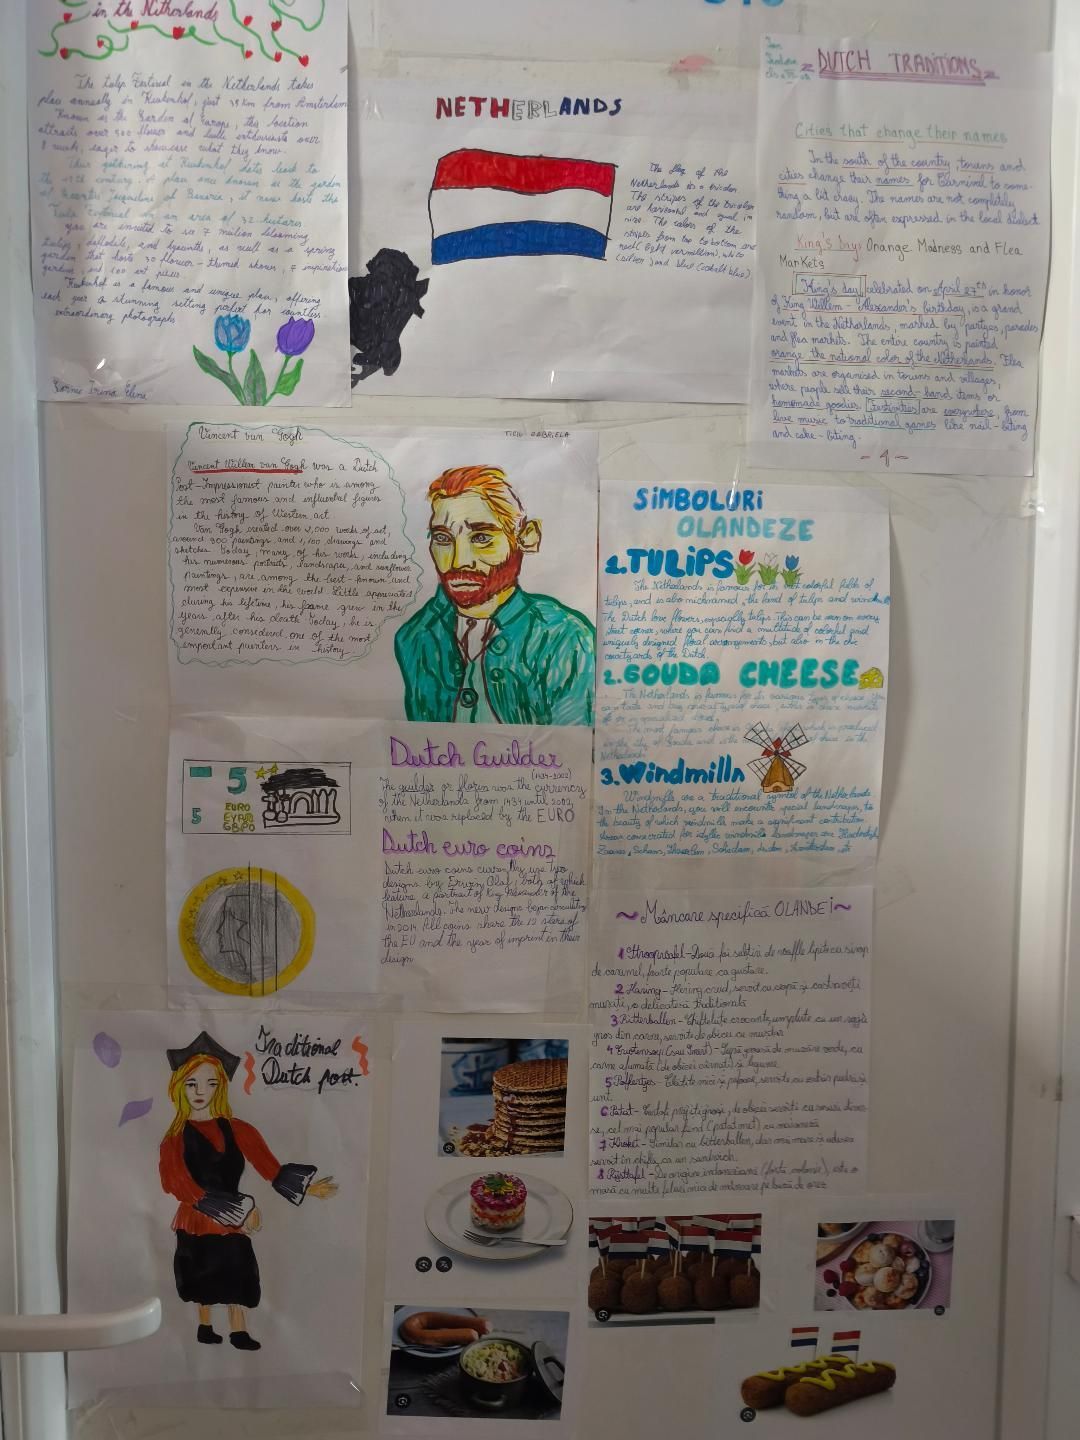 in the Netherlands
The tulip Festival in the Netherlands takes
place annually in Keukenhof, just 35 km from Amsterdam
Known as the Garden of Europe, this location
attracts over 500 flower and bulb enthusiasts over
8 weeks, eager to showcase what they know.
Their gathering at Keukenhof dates back to
the 15th century. A place once known as the garden
of Jacqueline of Bavaria, it now hosts the
Tulip Festival on an area of 32 hectares
You are invited to see 7 million blooming
tulips, daffodils, and hyacinths, as well as a spring
garden that hosts 30 flower-themed shows, 7 inspiration
gardens, and 100 art pieces.
Keukenhof is a famous and unique place, offering
each year a stunning setting perfect for countless
extraordinary photographs
Irina Elina
NETHERLANDS
The flag of the
Netherlands is a tricolor.
The stripes of the tricolor
are horizontal and equal in
size. The colors of the
stripes from top to bottom are
red (light vermilion), white
(silver) and blue (cobalt blue).
DUTCH TRADITIONS
Cities that change their names
In the south of the country, towns and
cities change their names for Carnival to some-
thing a bit crazy. The names are not completely
random, but are often expressed in the local dialect.
King's Day: Orange Madness and Flea
Markets
King's day celebrated on April 27th in honor
of King Willem-Alexander's birthday, is a grand
event in the Netherlands, marked by partyes, parades
and flea markets. The entire country is painted
orange, the national color of the Netherlands. Flea
markets are organised in towns and villages,
where people sell their second-hand items or
homemade goodies. Festivities are everywhere, from
live music to traditional games like nail-biting
and cake-biting.
- 4 -
Vincent van Gogh
TICU GABRIELA
Vincent Willem van Gogh was a Dutch
Post-Impressionist painter who is among
the most famous and influential figures
in the history of Western art
Van Gogh created over 2,000 works of art,
around 900 paintings and 1,100 drawings and
sketches. Today, many of his works, including
his numerous portraits, landscapes, and sunflower
paintings, are among the best-known and
most expensive in the world. Little appreciated
during his lifetime, his fame grew in the
years after his death. Today, he is
generally considered one of the most
important painters in history.
SIMBOLURI
OLANDEZE
1.TULIPS
The Netherlands is famous for its vast colorful fields of
tulips, and is also nicknamed the land of tulips and windmills
The Dutch love flowers, especially tulips. This can be seen on every
street corner, where you can find a multitude of colorful and
uniquely designed floral arrangements, but also in the chic
courtyards of the Dutch.
2.GOUDA CHEESE
The Netherlands is famous for its various types of cheese. You
can taste and buy several types of cheese, either in cheese markets
or in specialized stores.
The most famous cheese is Gouda, which is produced
in the city of Gouda and is the cheese in the
Netherlands
3.Windmills
Windmills are a traditional symbol of the Netherlands.
In the Netherlands, you will encounter special landscapes, to
the beauty of which windmills make a significant contribution.
Areas consecrated for idyllic windmill landscapes are Kinderdijk,
Zaanse, Schans, Haarlem, Schiedam, Leiden, Amsterdam, etc
5
5
EURO
ΕΥΡΩ
Dutch Guilder
(1434-2002)
The guilder or florin was the currency
of the Netherlands from 1434 until 2002,
when it was replaced by the EURO
Dutch euro coins
Dutch euro coins currently use two
designs by Erwin Olaf, both of which
feature a portrait of King Alexander of the
Netherlands. The new designs began circulating
in 2014. All coins share the 12 stars of
the EU and the year of imprint in their
design
~ Mâncare specifică OLANDEI ~
1 Stroopwafel - Două foi subțiri de waffle lipite cu sirop
de caramel, foarte populare ca gustare.
2 Haring - Hering crud, servit cu ceapă și castraveți
murați, o delicatesă tradițională
3 Bitterballen - Chifteluțe crocante, umplute cu un ragù
gros din carne, servite de obicei cu muștar
4 Erwtensoep (sau Snert) - Supă groasă de mazăre verde, cu
carne afumată (de obicei cârnați) și legume.
5 Poffertjes - Clătite mici și pufoase, servite cu zahăr pudră și
unt.
6 Patat - Cartofi prăjiți groși, de obicei serviți cu sosuri diver-
se, cel mai popular fiind (patat met) cu maioneză
7 Kroket - Similar cu bitterballen, dar mai mare și adesea
servit în chiflă, ca un sandwich.
8 Rijsttafel - De origine indoneziană (fosta colonie), este o
masă cu multe feluri mici de mâncare pe bază de orez
Traditional
Dutch port.